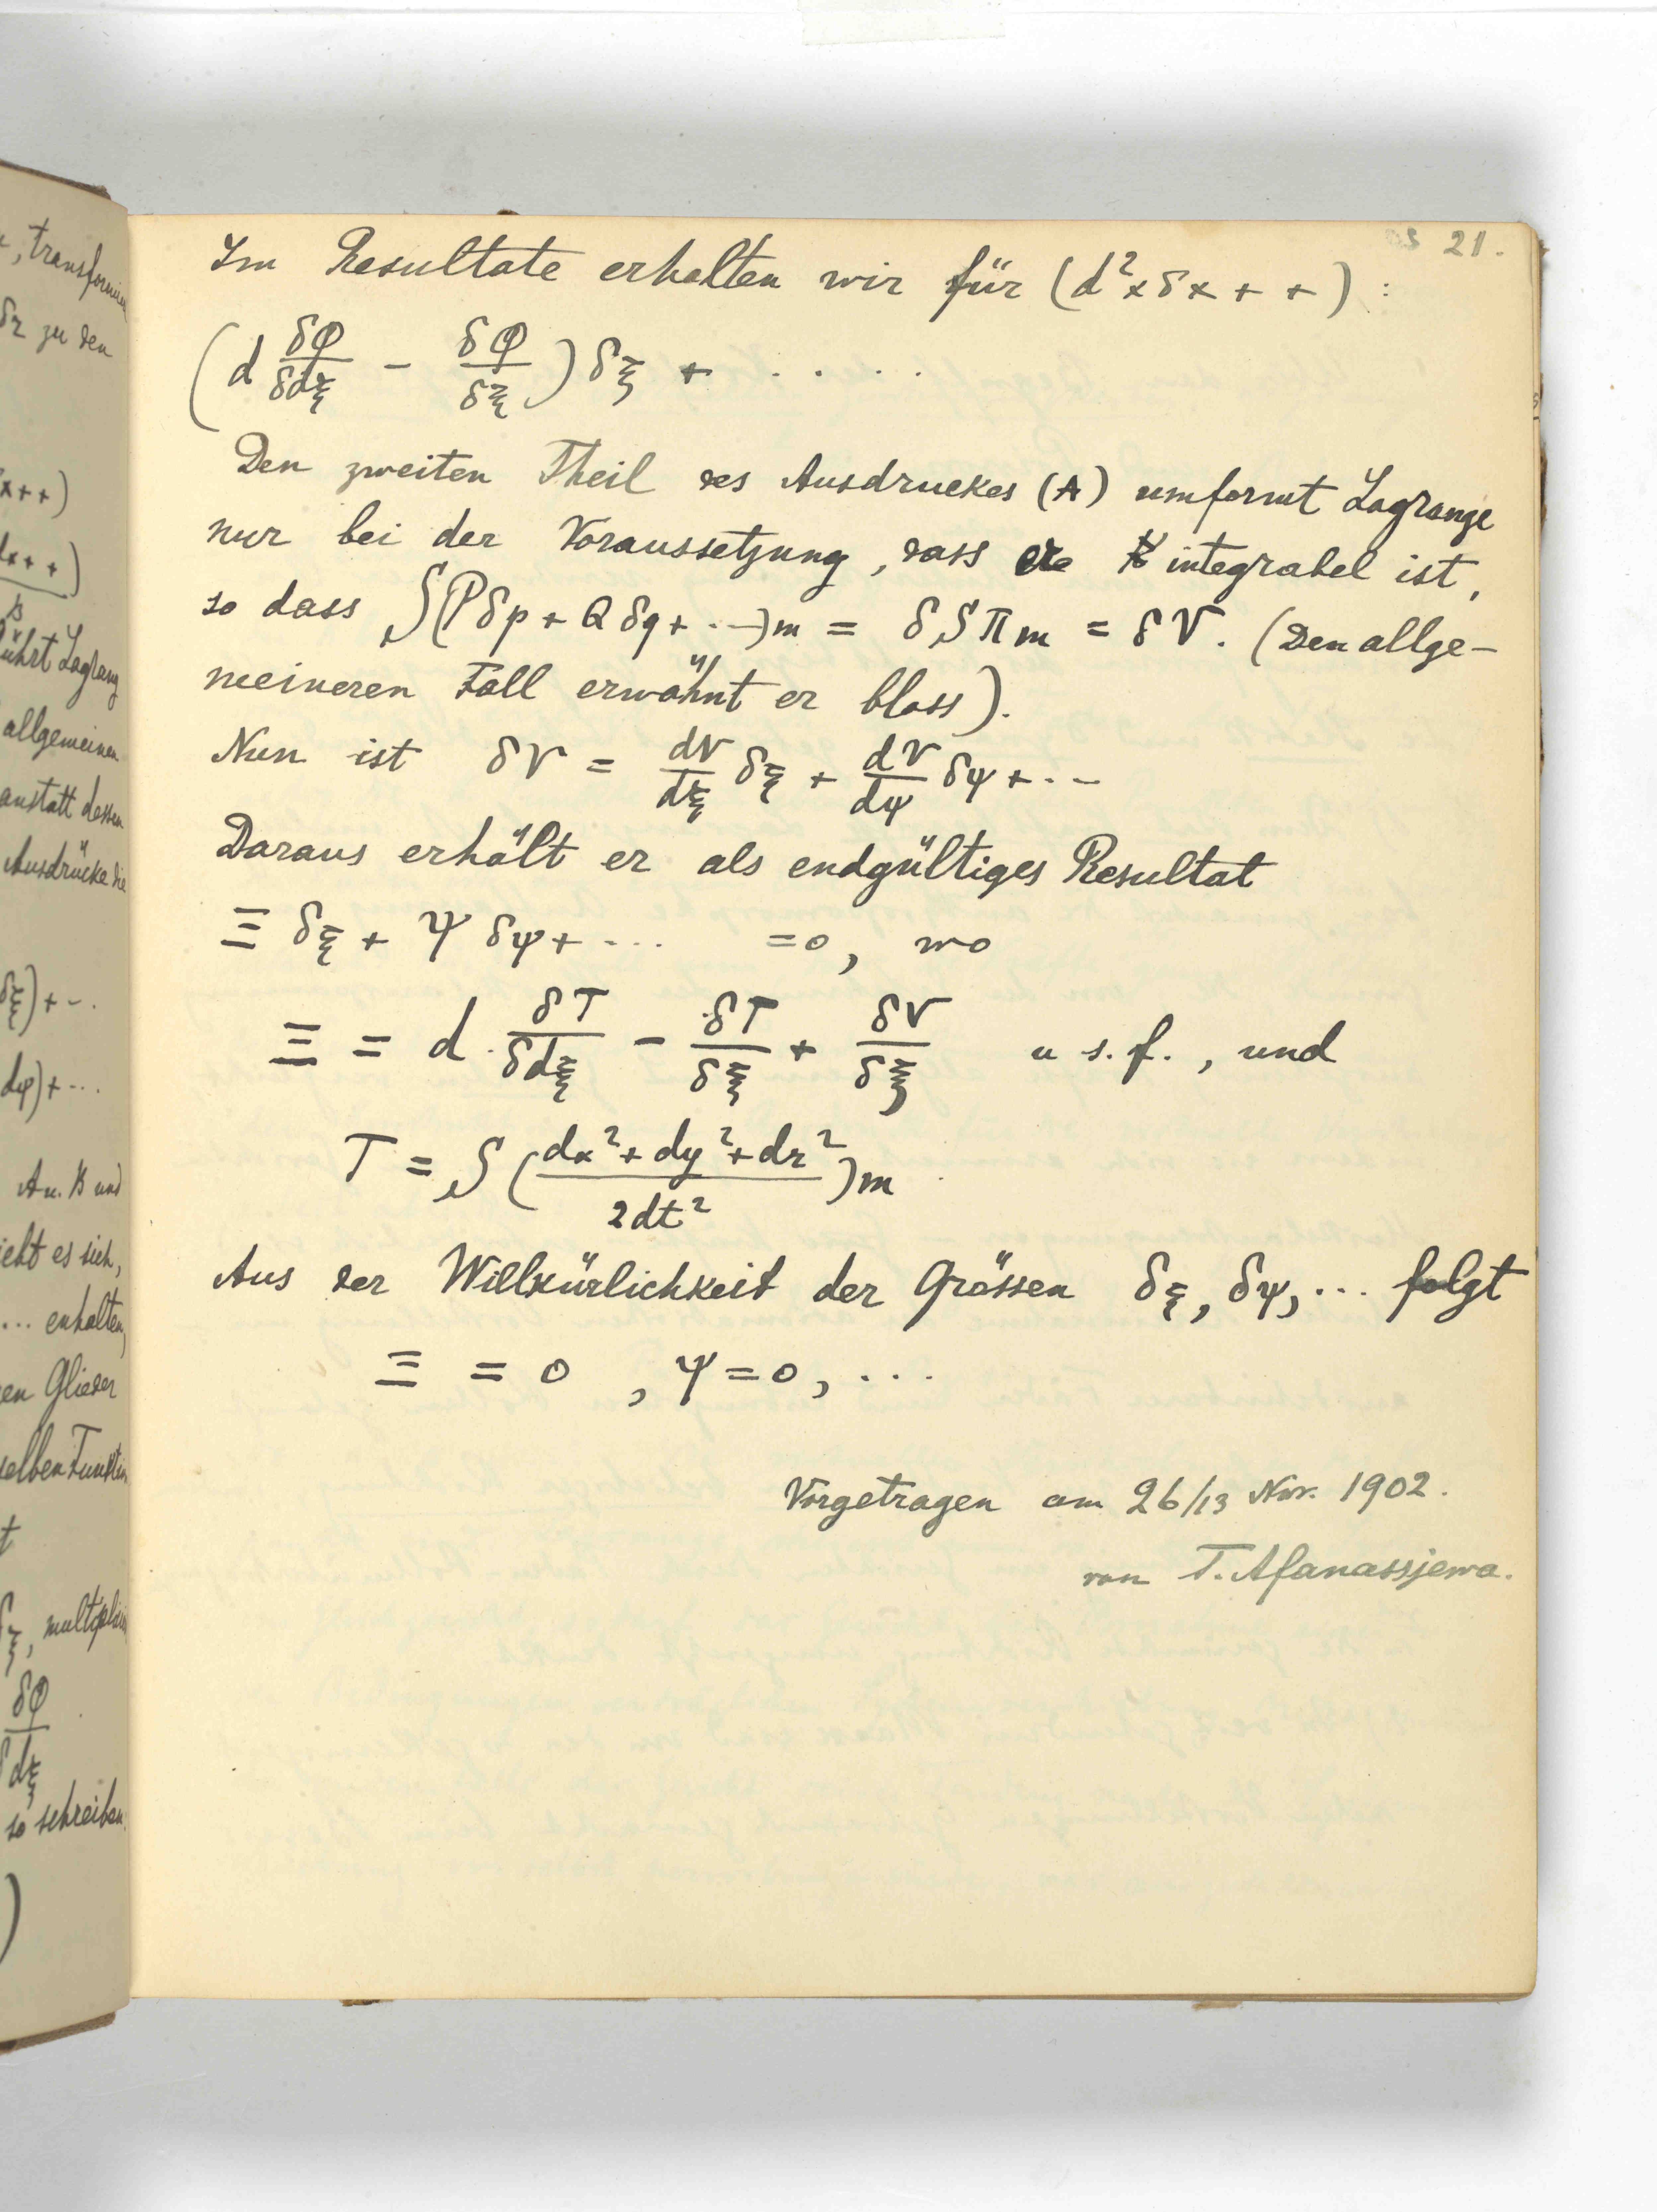 , transformier
δz zu den
x++)
dx++)
führt Lagrang
allgemeinen
anstatt dessen
Ausdrücke die
δξ)+-.
dφ)+...
An. B und
ieht es sich,
... erhalten,
en Glieder
selben Funktion
t
δξ, multiplicir
δΦ
δdξ
so schreiben
)
21.
Im Resultate erhalten wir für (d²xδx + +) :
(d δΦ/δdξ - δΦ/δξ) δξ + . . . . .
Den zweiten Theil des Ausdruckes (A) umformt Lagrange
nur bei der Voraussetzung, dass er integrabel ist,
so dass ∫(Pδp + Qδq + ..-)m = δ∫Πm = δV. (Den allge-
meineren Fall erwähnt er bloss).
Nun ist δV = dV/dξ δξ + dV/dψ δψ + ..-
Daraus erhält er als endgültiges Resultat
Ξ δξ + Ψ δψ + ... =0, wo
Ξ = d. δT/δdξ - δT/δξ + δV/δξ u s.f., und
T = ∫ (dx²+dy²+dz²/2dt²)m
Aus der Willkürlichkeit der Grössen δξ, δψ, ... folgt
Ξ = 0 , Ψ=0, ...
Vorgetragen am 26/13 Nov. 1902.
von T. Afanassjewa.